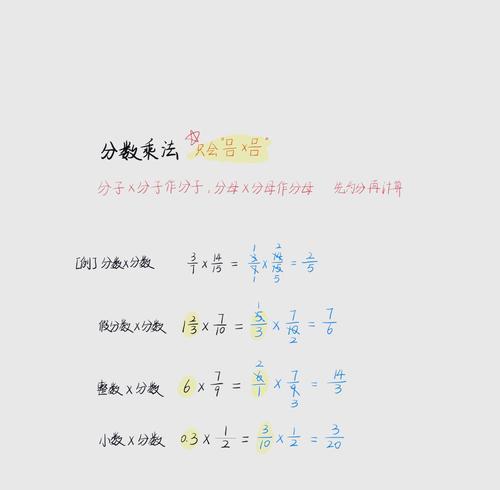 分数乘法 ☆只会"吕×吕"
分子×分子作分子,分母×分母作分母 先约分再计算
[例]分数×分数 3/1 × 14/15 = × = 2/5
假分数×分数 1 2/3 × 7/10 = 5/3 × 7/10 = 7/6
整数×分数 6 × 7/9 = 6/1 × 7/9 = 14/3
小数×分数 0.3 × 1/2 = 3/10 × 1/2 = 3/20